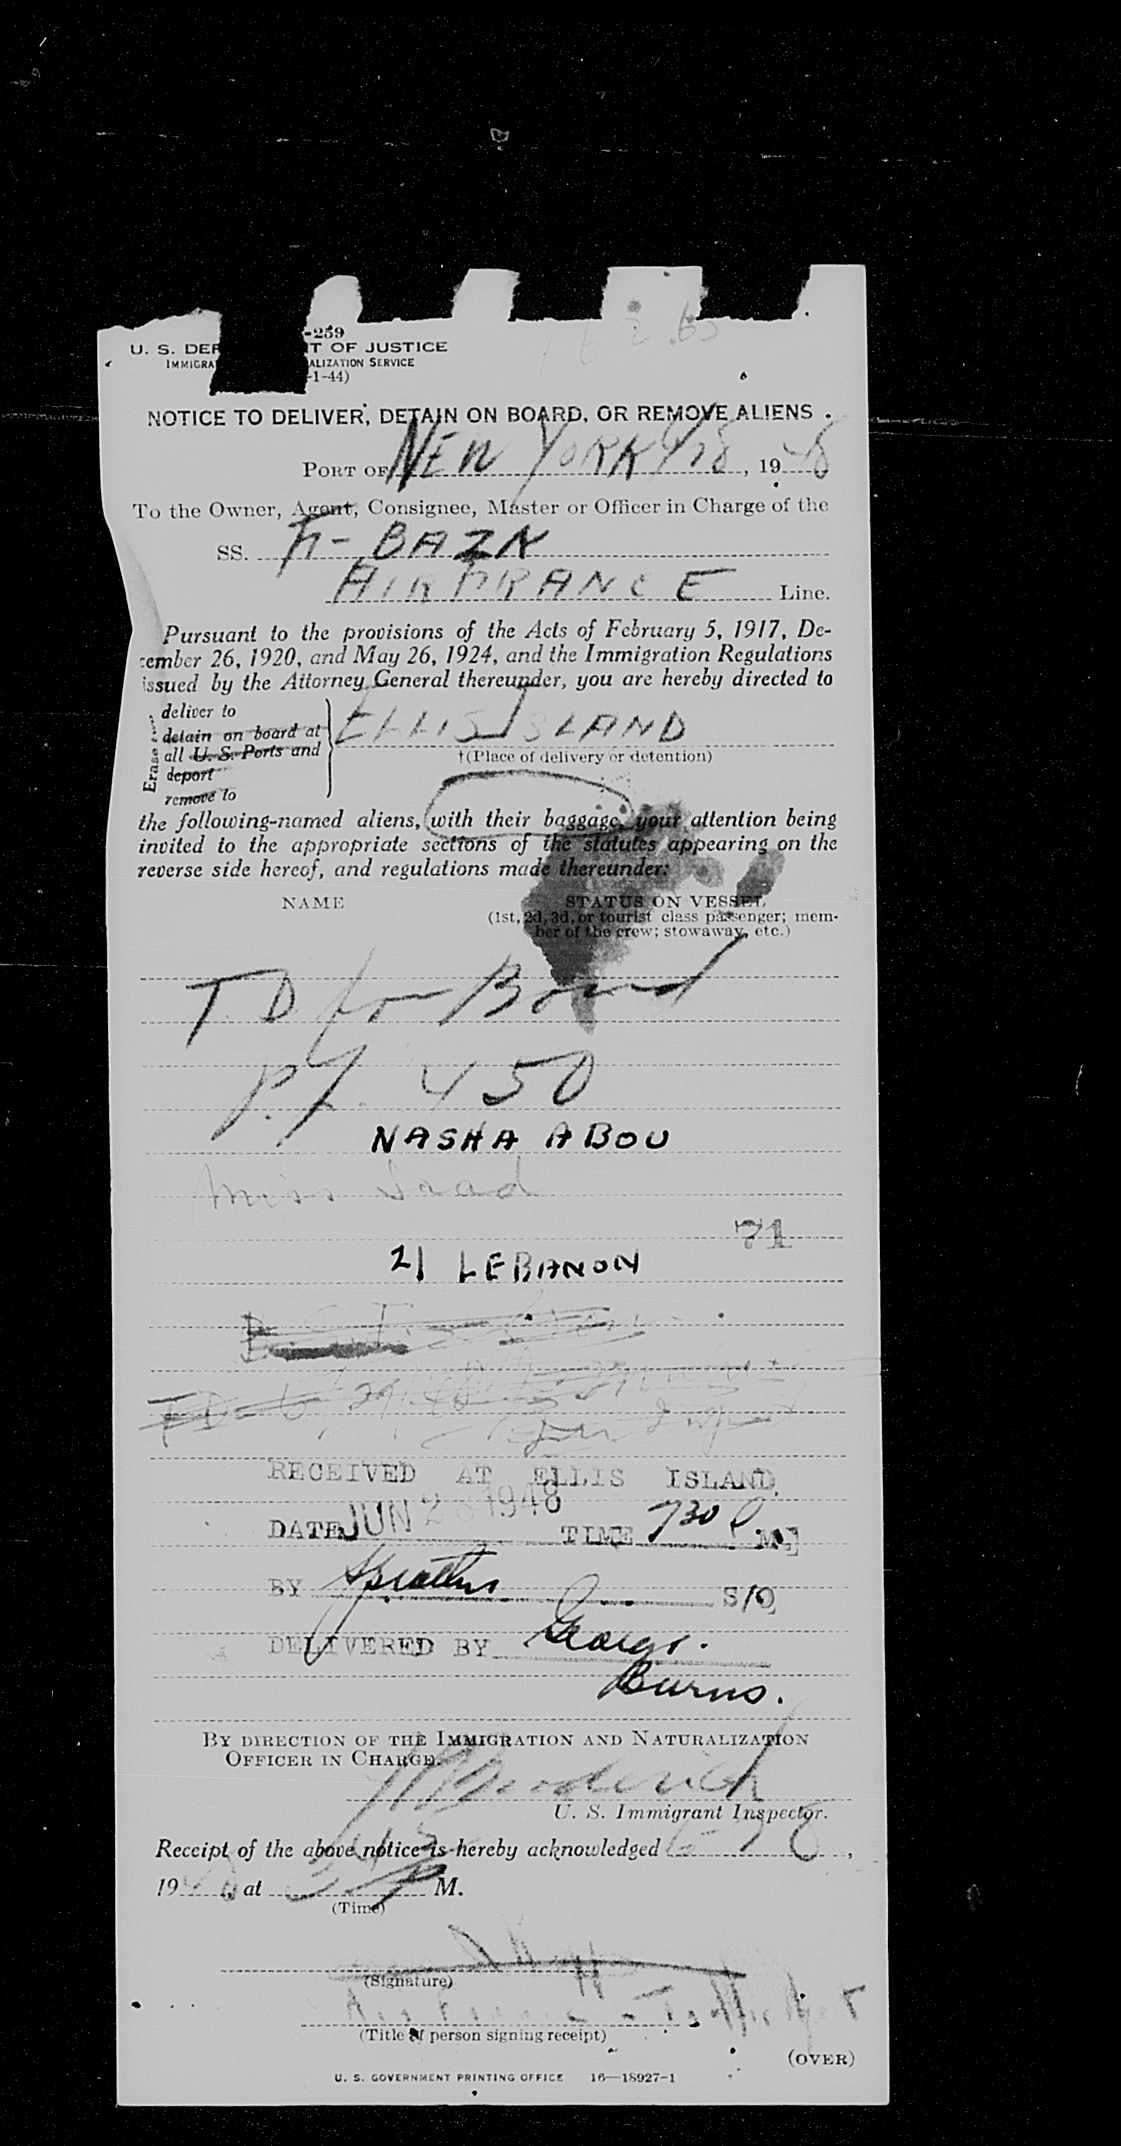 -259
U. S. DEP T OF JUSTICE
IMMIGRA ALIZATION SERVICE
-1-44)
NOTICE TO DELIVER, DETAIN ON BOARD, OR REMOVE ALIENS
PORT OF NEW YORK 6/28, 1948
To the Owner, Agent, Consignee, Master or Officer in Charge of the
SS. F-BAZN
AIR FRANCE Line.
Pursuant to the provisions of the Acts of February 5, 1917, De-
cember 26, 1920, and May 26, 1924, and the Immigration Regulations
issued by the Attorney General thereunder, you are hereby directed to
Erase
deliver to
detain on board at
all U. S. Ports and
deport
remove to
ELLIS ISLAND
†(Place of delivery or detention)
the following-named aliens, with their baggage, your attention being
invited to the appropriate sections of the statutes appearing on the
reverse side hereof, and regulations made thereunder:
NAME STATUS ON VESSEL
(1st, 2d, 3d, or tourist class passenger; mem-
ber of the crew; stowaway, etc.)
T.D. for Bond
P.J. 450
NASHA ABOU
Miss Saad
71
21 LEBANON
RECEIVED AT ELLIS ISLAND
DATE JUN 28 1948 TIME 730 P M.
BY S/O
DELIVERED BY George
Burns.
BY DIRECTION OF THE IMMIGRATION AND NATURALIZATION
OFFICER IN CHARGE.
U. S. Immigrant Inspector.
Receipt of the above notice is hereby acknowledged 6-28,
1948, at P M.
(Time)
(Signature)
(Title of person signing receipt)
(OVER)
U. S. GOVERNMENT PRINTING OFFICE 16—18927-1